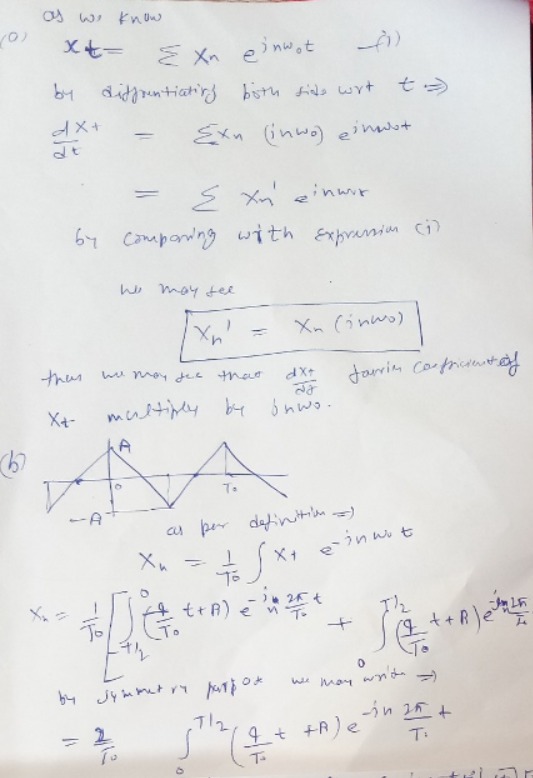 as we know
(a) xt = Σ Xn e^jnw0t —(i)
by diffrentiating both side wrt t ⇒
dXt/dt = ΣXn (inw0) e^inw0t
= Σ Xn' e^inw0t
by comparing with expression (i)
we may see
Xn' = Xn (inw0)
thus we may see that dXt/dt fourier coefficient of
Xt multiply by inw0.
(b)
A
0
T0
-A
as per definition ⇒
Xn = 1/T0 ∫ Xt e^-inw0t
Xn = 1/T0 [ ∫_{-T/2}^{0} (4/T0 t+A) e^-jn 2π/T0 t + ∫_{0}^{T/2} (4/T0 t+A) e^-jn 2π/T0
by symmetry we may write ⇒
= 2/T0 ∫_{0}^{T/2} (4/T0 t +A) e^-jn 2π/T0 t